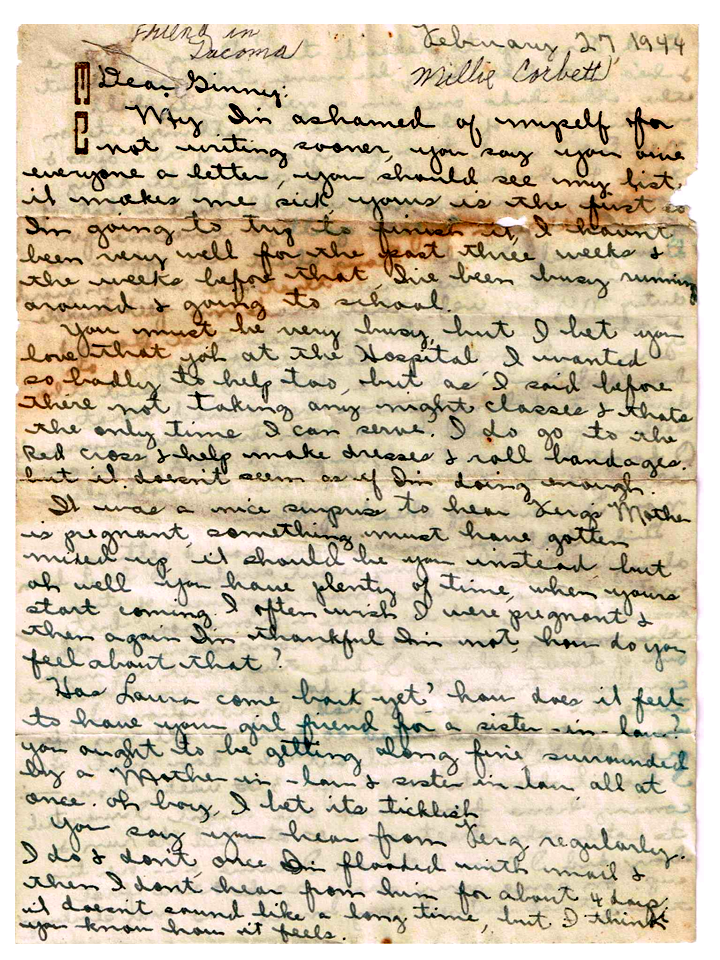 Friend in
Tacoma
February 27, 1944
Millie Corbett
M C
Dear Ginny:
Why I'm ashamed of myself for
not writing sooner, you say you owe
everyone a letter, you should see my list,
it makes me sick, yours is the first so
I'm going to try to finish it, I haunt
been very well for the past three weeks &
the weeks before that, I've been busy running
around & going to school.
You must be very busy, but I bet you
love that job at the Hospital I wanted
so, badly to help too, but as I said before
there not taking any night classes & thats
the only time I can serve. I do go to the
Red cross & help make dresses & roll bandages.
but it doesn't seem as if I'm doing enough.
It was a nice surprise to hear Verg's Mother
is pregnant, something must have gotten
mixed up, it should be you instead but
oh well you have plenty of time, when yours
start coming. I often wish I were pregnant &
then again I'm thankful I'm not, how do you
feel about that?
Has Laura come back yet? how does it feel
to have your girl friend for a sister-in-law?
you ought to be getting along fine surrounded
by a Mother-in-law & sister in-law all at
once. oh boy, I bet its ticklish
You say you hear from Verg regularly.
I do & don't, once I'm flooded with mail &
then I dont hear from him for about 4 days,
it doesn't sound like a long time, but I think
you know how it feels.